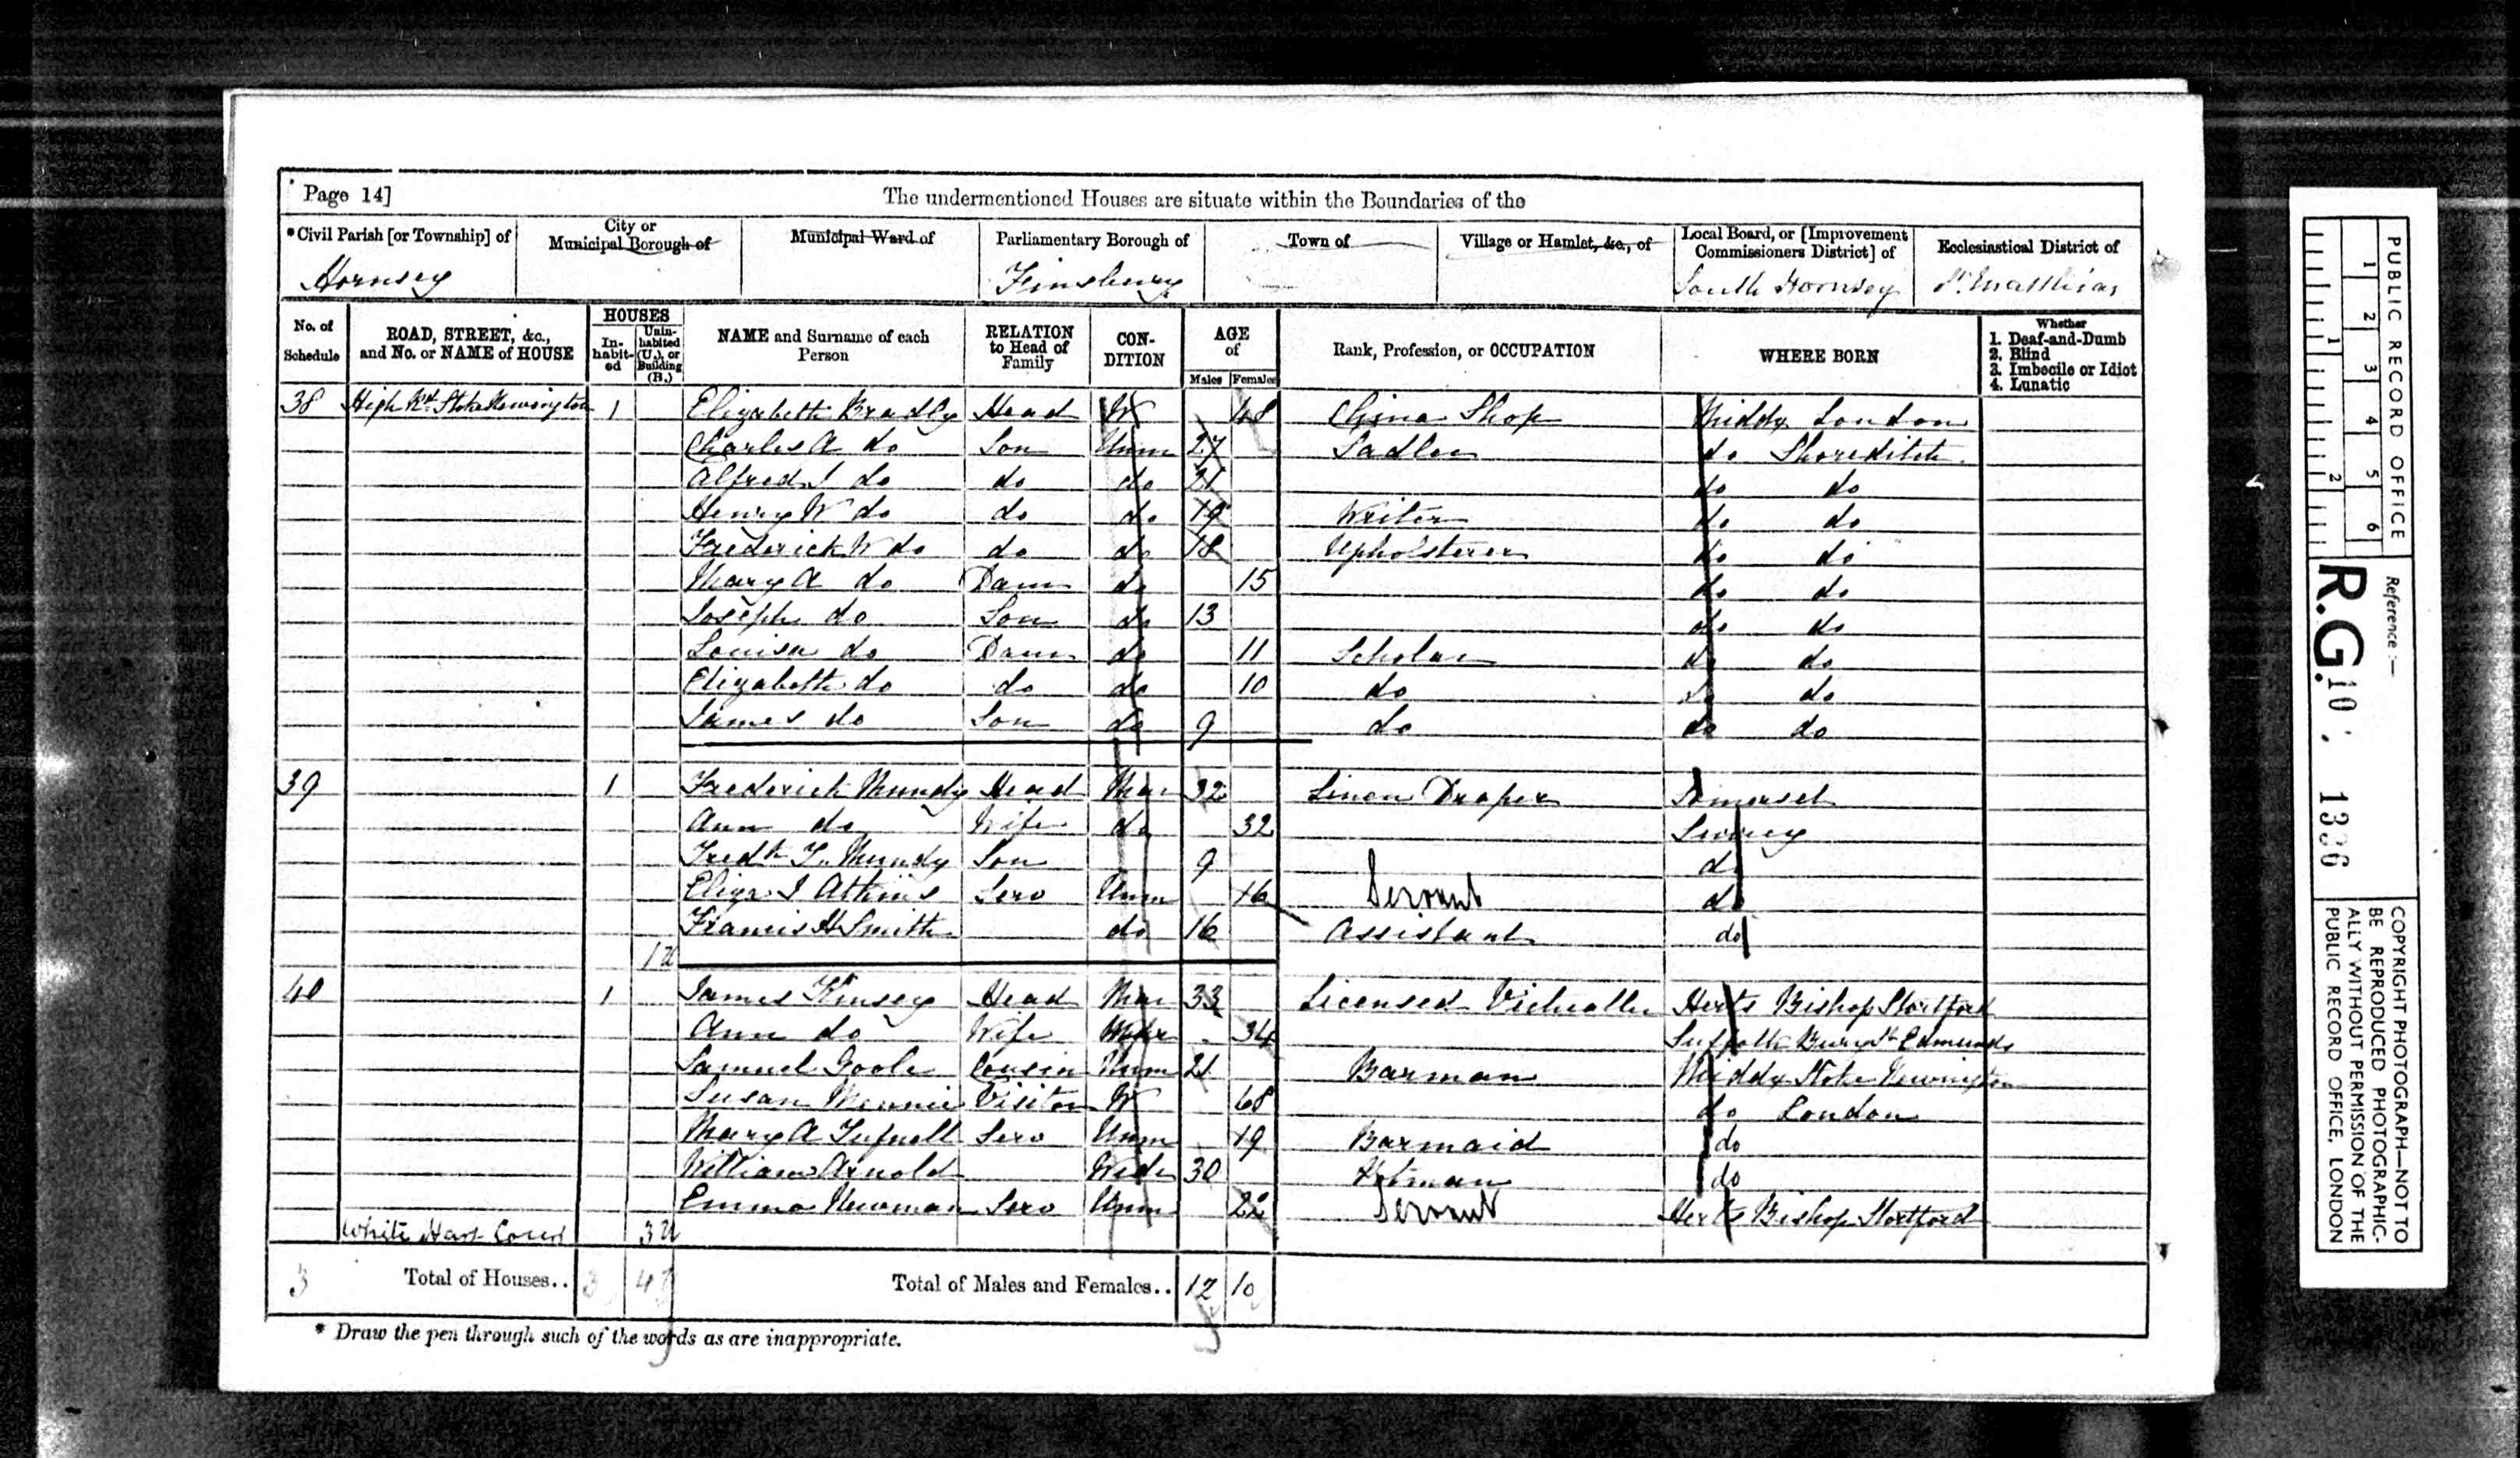 Page 14]
The undermentioned Houses are situate within the Boundaries of the
*Civil Parish [or Township] of City or Municipal Borough of Municipal Ward of Parliamentary Borough of Town of Village or Hamlet, &c., of Local Board, or [Improvement Commissioners District] of Ecclesiastical District of
Hornsey Finsbury South Hornsey St. Matthias
No. of Schedule ROAD, STREET, &c., and No. or NAME of HOUSE HOUSES In-habit-ed Unin-habited (U.), or Building (B.) NAME and Surname of each Person RELATION to Head of Family CON-DITION AGE of Males Females Rank, Profession, or OCCUPATION WHERE BORN Whether 1. Deaf-and-Dumb 2. Blind 3. Imbecile or Idiot 4. Lunatic
38 High Rd Stoke Newington 1 Elizabeth Bradly Head W 48 China Shop Middx London
Charles A do Son Unm 27 Sadler do Shoreditch
Alfred J do do do 21 do do
Henry W do do do 19 Writer do do
Frederick W do do do 18 Upholsterer do do
Mary A do Daur do 15 do do
Joseph do Son do 13 do do
Louisa do Daur do 11 Scholar do do
Elizabeth do do do 10 do do do
James do Son do 9 do do do
39 1 Frederick Mundy Head Mar 32 Linen Draper Somerset
Ann do Wife do 32 Surrey
Fredk T. Mundy Son 9 do
Eliza J Atkins Serv Unm 16 Servant do
Francis H Smith do 16 Assistant do
1 U
40 1 James Kinsey Head Mar 33 Licensed Victualler Herts Bishop Stortford
Ann do Wife 34 Suffolk Bury St Edmunds
Samuel Poole Cousin Unm 21 Barman Middx Stoke Newington
Susan Visitor W 68 do London
Mary A Tufnell Serv Unm 19 Barmaid do
William Arnold Widr 30 Potman do
Emma Newman Serv Unm 22 Servant Herts Bishop Stortford
White Hart Court 3 U
3 Total of Houses.. 3 4 Total of Males and Females.. 12 10
* Draw the pen through such of the words as are inappropriate.
PUBLIC RECORD OFFICE
1 2 3 4 5 6
1 2
Reference :—
R.G. 10 1336
COPYRIGHT PHOTOGRAPH—NOT TO
BE REPRODUCED PHOTOGRAPHIC-
ALLY WITHOUT PERMISSION OF THE
PUBLIC RECORD OFFICE, LONDON